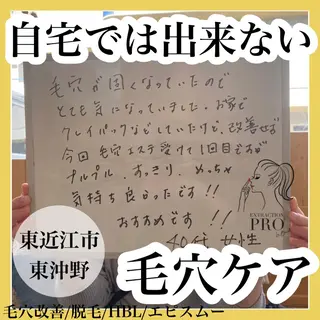 自宅では出来ない
毛穴が固くなっていたので
とても気になっていました。お家で
クレイパックなどしていたけど、改善せず
今回毛穴エステ受けて1回目ですが
プルプル、すっきり、めっちゃ
気持ち良かったです!!
おすすめです!!
40代 女性
EXTRACTION
PRO
東近江市
東沖野
毛穴ケア
毛穴改善/脱毛/HBL/エピスムー